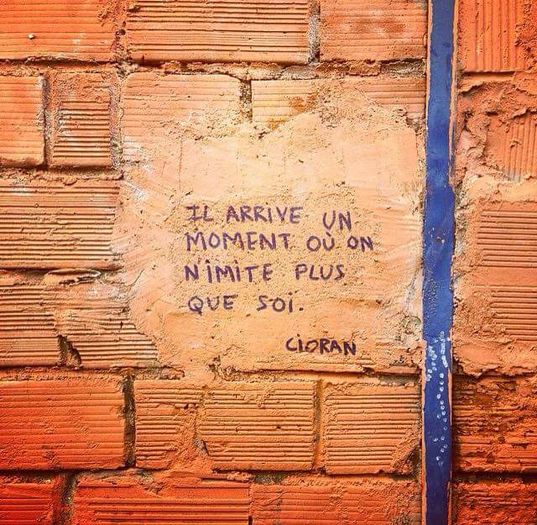 IL ARRIVE UN
MOMENT OÙ ON
N'IMITE PLUS
QUE SOI.
CIORAN